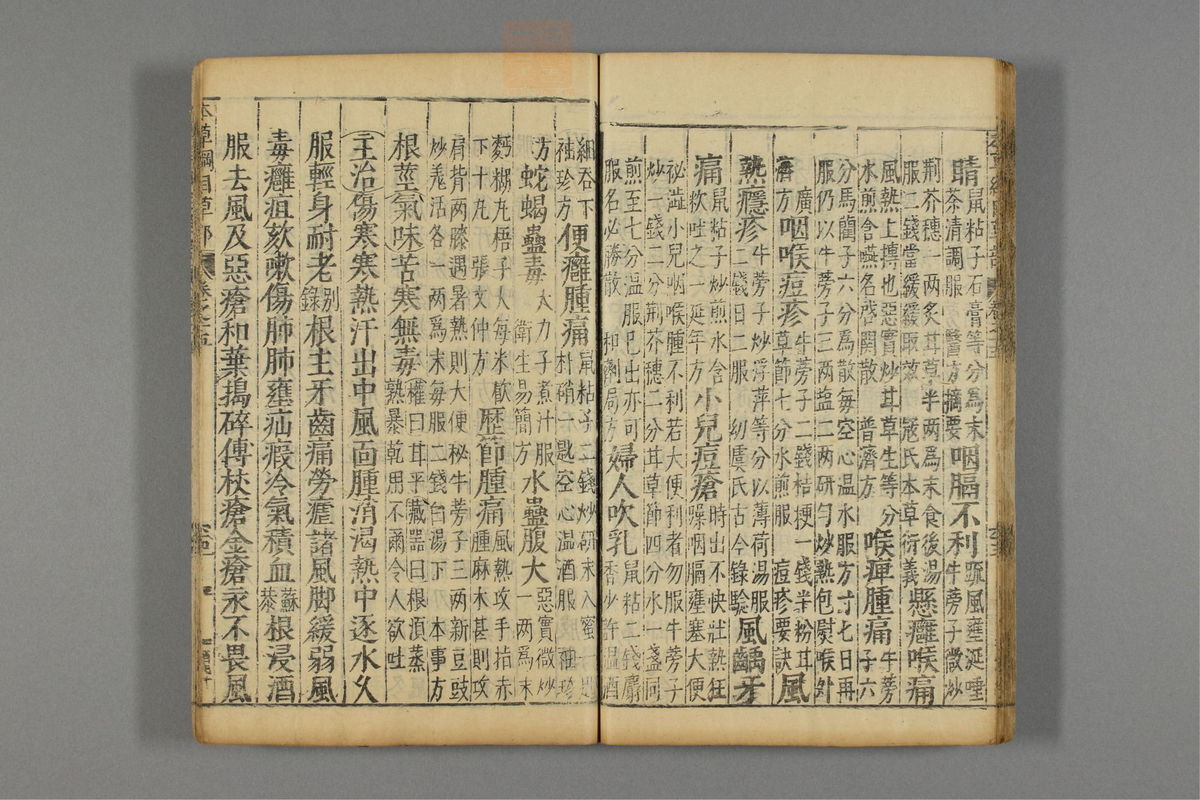 睛鼠粘子石膏等分為末茶清調服醫方摘要咽膈不利疏風壅涎唾牛蒡子微炒
荆芥穗一兩炙甘草半兩為末食後湯服二錢當緩緩取效冦氏本草衍義懸癰喉痛
風熱上摶也惡實炒甘草生等分水煎含嚥名啓関散普濟方喉痺腫痛牛蒡子六
分馬藺子六分為散每空心温水服方寸七日再服仍以牛蒡子三兩盐二兩研勻炒熱包熨喉外
廣濟方咽喉痘疹牛蒡子二錢桔梗一錢半粉甘草節七分水煎服痘疹要訣風
熱癮疹牛蒡子炒浮萍等分以薄荷湯服二錢日二服初虞氏古今錄驗風齲牙
痛鼠粘子炒煎水含軟吐之延年方小兒痘瘡時出不快壯熱狂噪咽膈壅塞大便
祕澁小兒咽喉腫不利若大便利者勿服牛蒡子炒一錢二分荆芥穗二分甘草節四分水一盞同
煎至七分温服已出亦可服名必勝散和劑局方婦人吹乳鼠粘二錢麝香少許温酒
細吞下袖珍方便癰腫痛鼠粘子二錢炒研末入蜜一匙朴硝一匙空心温酒服袖珍
方蛇蝎蠱毒大力子煮汁服衛生易簡方水蠱腹大惡實微炒一兩為末
麪糊丸梧子大每米飲下十丸張文仲方歷節腫痛風熱攻手指赤腫麻木甚則攻
肩背两膝遇暑熱則大便秘牛蒡子三兩新豆豉炒羌活各一兩爲末每服二錢白湯下本事方
根莖氣味苦寒無毒權曰甘平藏噐曰根須蒸熟暴乾用不爾令人欲吐
主治傷寒寒熱汗出中風面腫消渴熱中逐水久
服輕身耐老别錄根主牙齒痛勞瘧諸風脚緩弱風
毒癰疽欬嗽傷肺肺壅疝瘕冷氣積血蘇恭根浸酒
服去風及惡瘡和葉搗碎傅杖瘡金瘡永不畏風
本草綱目草部 卷之十五